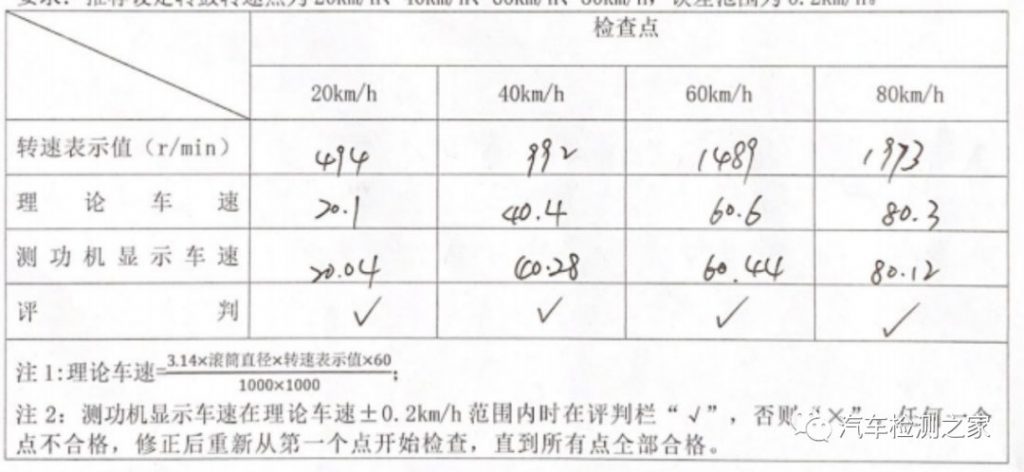 要求：推荐设定转鼓转速点为20km/h、40km/h、60km/h、80km/h，误差范围为0.2km/h。
检查点
20km/h 40km/h 60km/h 80km/h
转速表示值（r/min） 494 992 1489 1973
理论车速 20.1 40.4 60.6 80.3
测功机显示车速 20.04 40.28 60.44 80.12
评判 ✓ ✓ ✓ ✓
注1:理论车速=3.14×滚筒直径×转速表示值×60/1000×1000;
注2：测功机显示车速在理论车速±0.2km/h范围内时在评判栏“√”，否则“×”，任何一个
点不合格，修正后重新从第一个点开始检查，直到所有点全部合格。
汽车检测之家